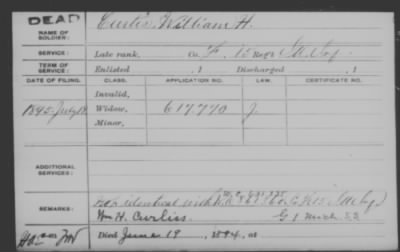 DEAD
NAME OF SOLDIER: Curtis, William H.
SERVICE: Late rank, Co. F, 15 Reg't Ia. Inf.
TERM OF SERVICE: Enlisted , 1 Discharged , 1
DATE OF FILING. CLASS. APPLICATION NO. LAW. CERTIFICATE NO.
Invalid,
1895 July Widow, 617770 J.
Minor,
ADDITIONAL SERVICES:
Not identical with
REMARKS: Wm H. Curliss G 1 Mich. SS
Died June 19, 1894, at